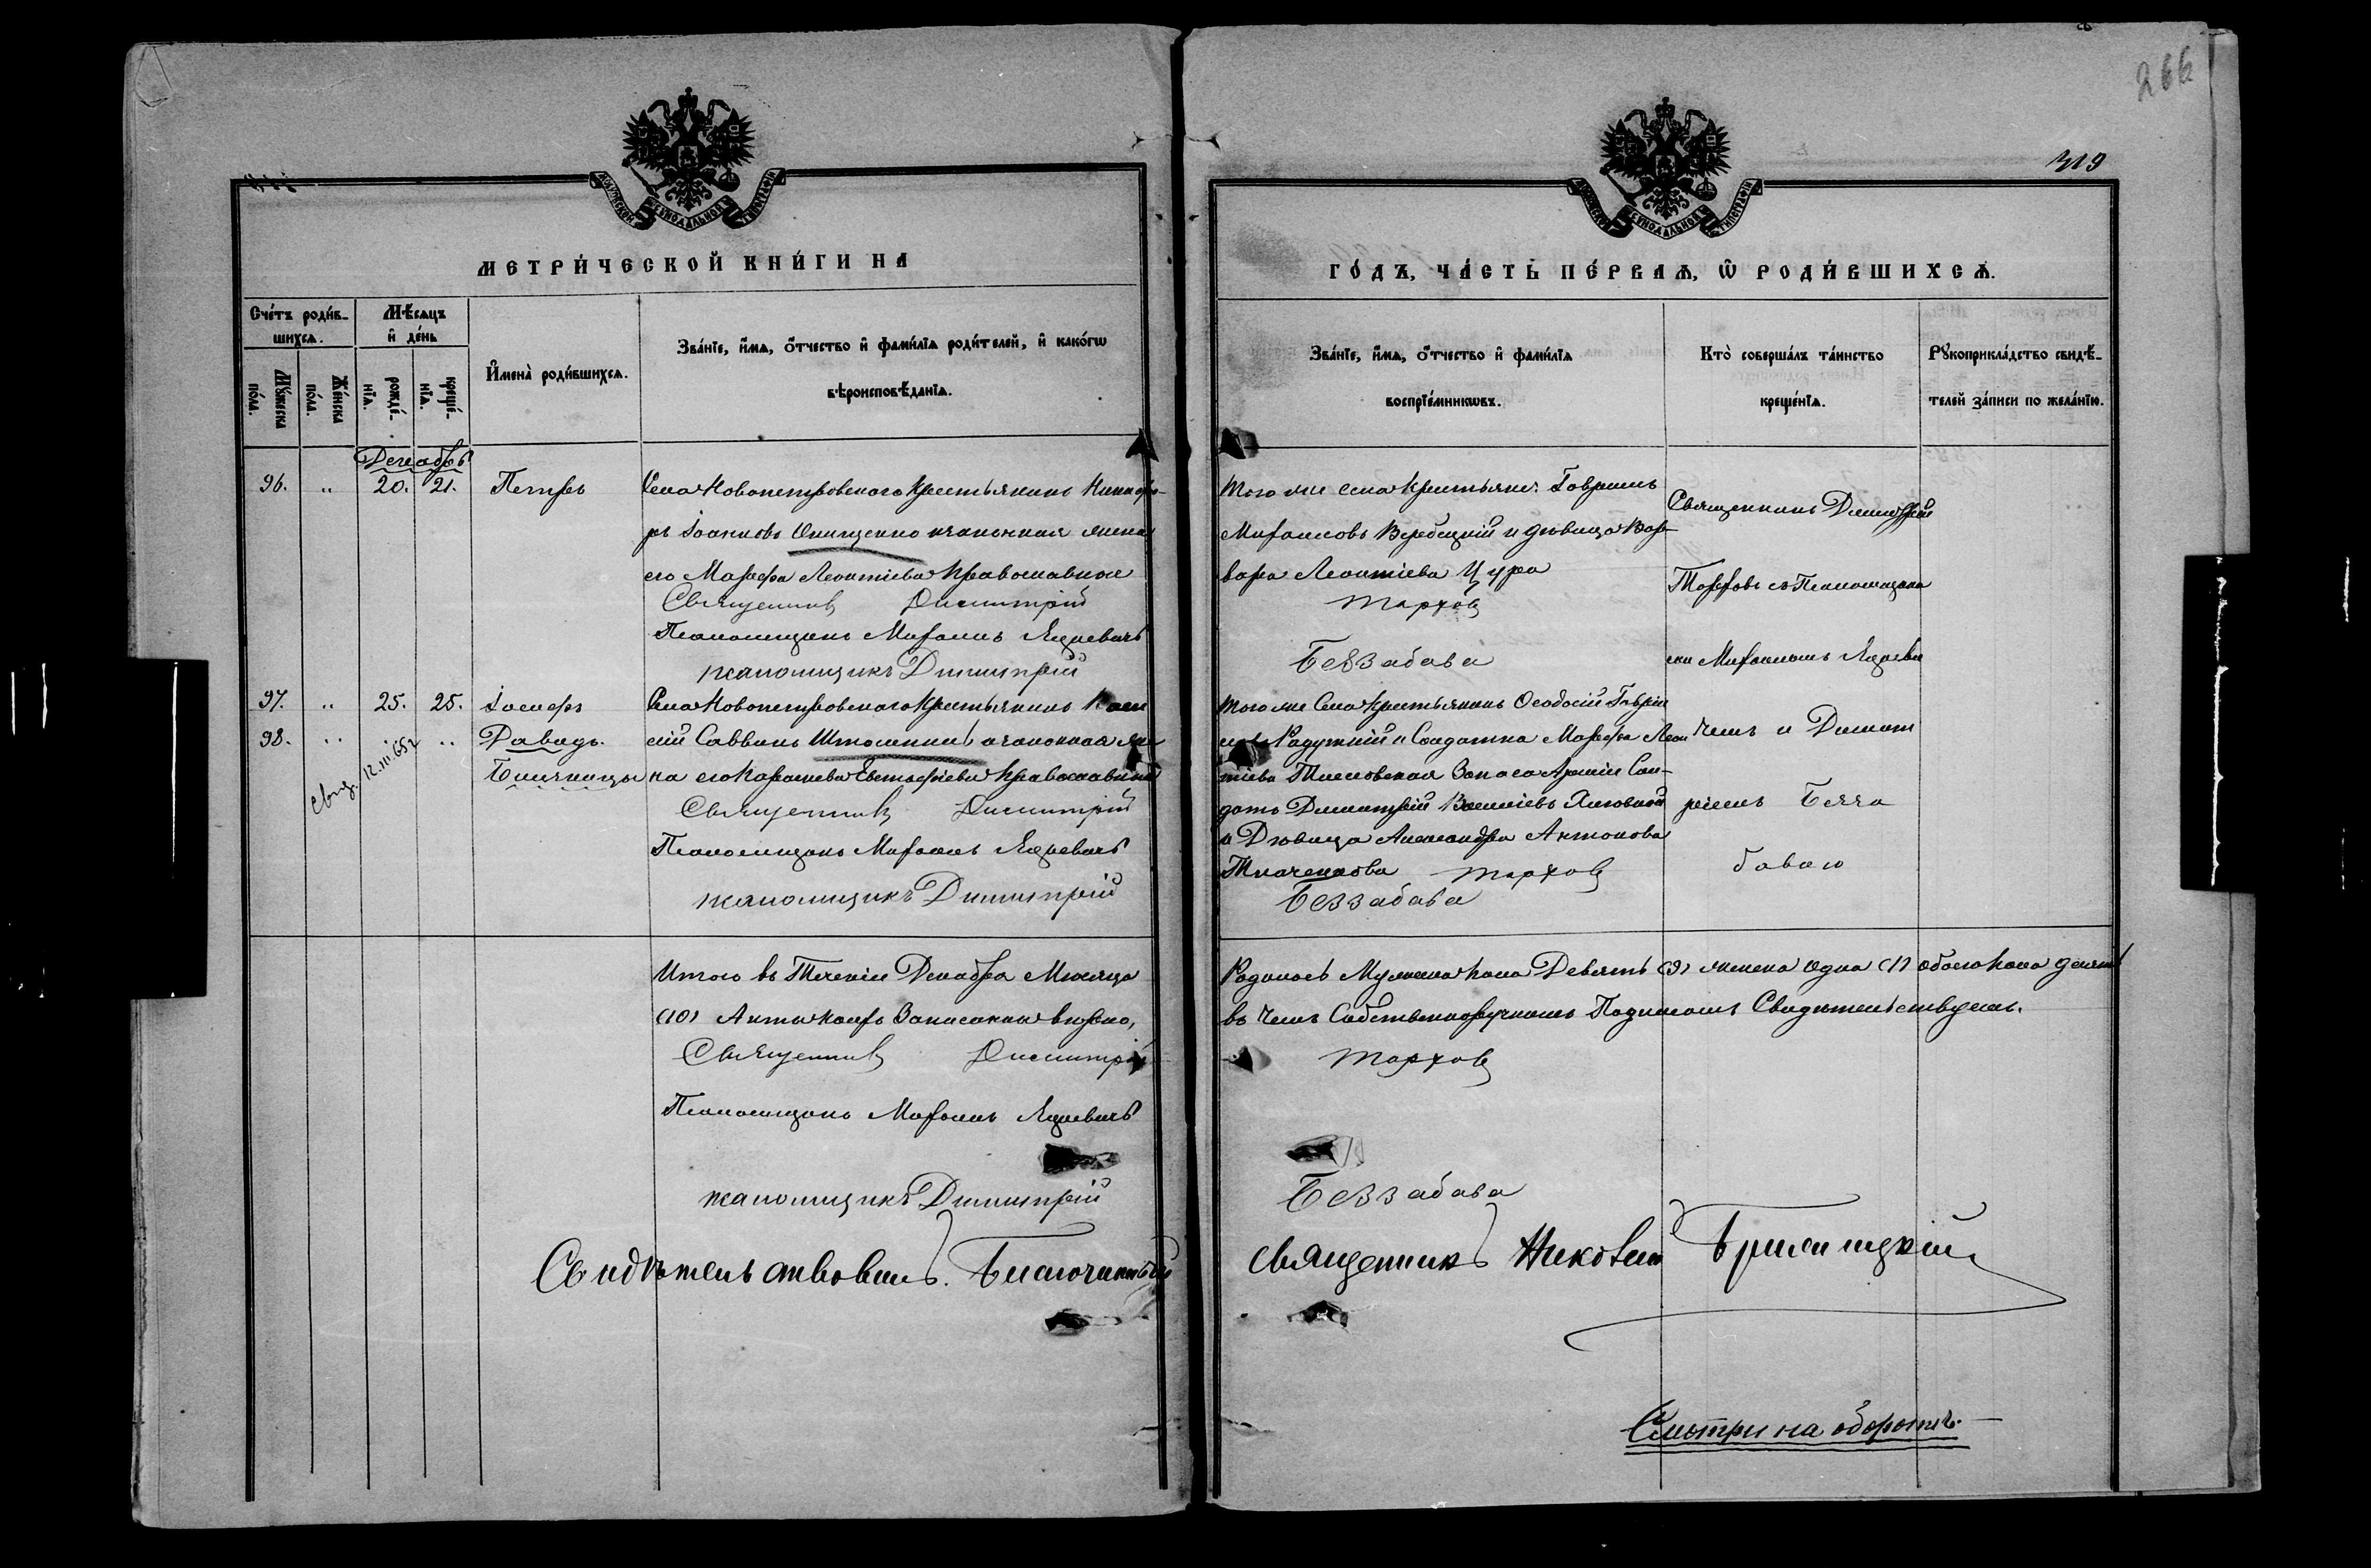 266
319
МЕТРИ́ЧЕСКОЙ КНИ́ГИ НА
ГО́ДЪ, ЧА́СТЬ ПЕ́РВАѦ, Ѡ РОДИ́ВШИХСѦ.
Сче́тъ роди́в-
шихсѧ.
Мꙋжеска
по́ла.
Же́нска
по́ла.
Мѣ́сѧцъ
и҆ де́нь
рожде́-
нїѧ.
креще́-
нїѧ.
И҆мена̀ роди́вшихсѧ.
Зва́нїе, и҆́мѧ, ѻ҆́тчество и҆ фами́лїѧ роди́телей, и҆ како́гѡ
вѣроисповѣ́данїѧ.
Зва́нїе, и҆́мѧ, ѻ҆́тчество и҆ фами́лїѧ
воспрїе́мникѡвъ.
Кто̀ соверша́лъ та́инство
креще́нїѧ.
Рꙋкоприкла́дство свидѣ́-
телей за́писи по жела́нїю.
Декабрь
96. „ 20. 21. Петръ
Села Новопетровскаго Крестьянинъ Никифо-
ръ Іоанновъ Онищенко и законная жена
его Марфа Леонтіева Православные
Священникъ Димитрій
Псаломщикъ Михаилъ Яцкевичъ
псаломщикъ Димитрій
Того же села Крестьяне: Гавріилъ
Михаиловъ Вербецкій и дѣвица Вар-
вара Леонтіева Цура
Тарховъ
Беззабава
Священникъ Димитрій
Тарховъ съ Псаломщика
ми Михаиломъ Яцкеви
чемъ и Димит
ріемъ Безза
бавою
97. „ 25. 25. Іосифъ
98. „ „ „ Давидъ.
Близнецы
Села Новопетровскаго Крестьянинъ
Саввинъ и законная же
на его Евстафіева Православные
Священникъ Димитрій
Псаломщикъ Михаилъ Яцкевичъ
псаломщикъ Димитрій
Того же Села Крестьянинъ Ѳеодосій Гавріи
и Солдатка Марфа Леон
тіева Запаса Арміи Сол-
датъ Димитрій
и Дѣвица Александра Антонова
Ткаченкова Тарховъ
Беззабава
Итого въ Теченіи Декабря Мѣсяца
(10) Записаны вѣрно,
Священникъ Димитрій
Псаломщикъ Михаилъ Яцкевичъ
псаломщикъ Димитрій
Свидѣтельствовалъ. Благочинный
Родилось Мужеска пола Девять (9) женска одна (1) обоего пола десять
въ чемъ Собственноручнымъ Подписомъ Свидѣтельствуемъ.
Тарховъ
Беззабава
Священникъ
Смотри на оборотѣ.